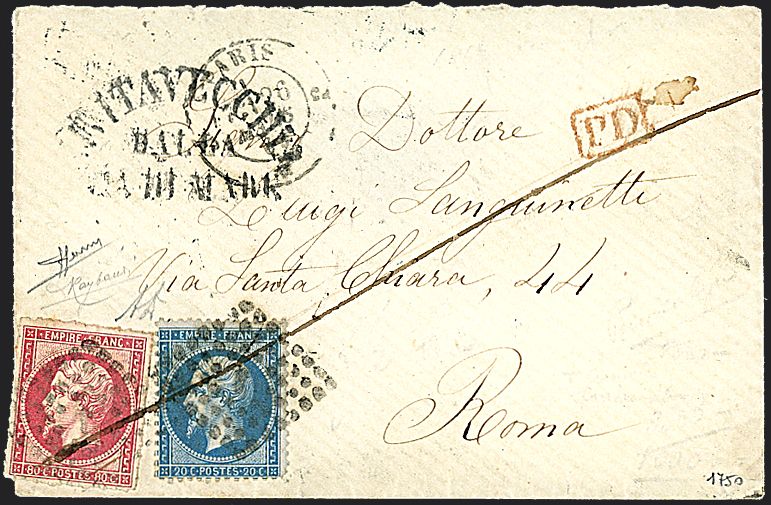 PARIS
CIVITAVECCHIA
DALLA
VIA DI MARE
PD
Dottore
Luigi Sanguinetti
Via Santa Chiara, 44
Roma
EMPIRE FRANC
80 C POSTES 80 C
EMPIRE FRANC
20 C POSTES 20 C
1750